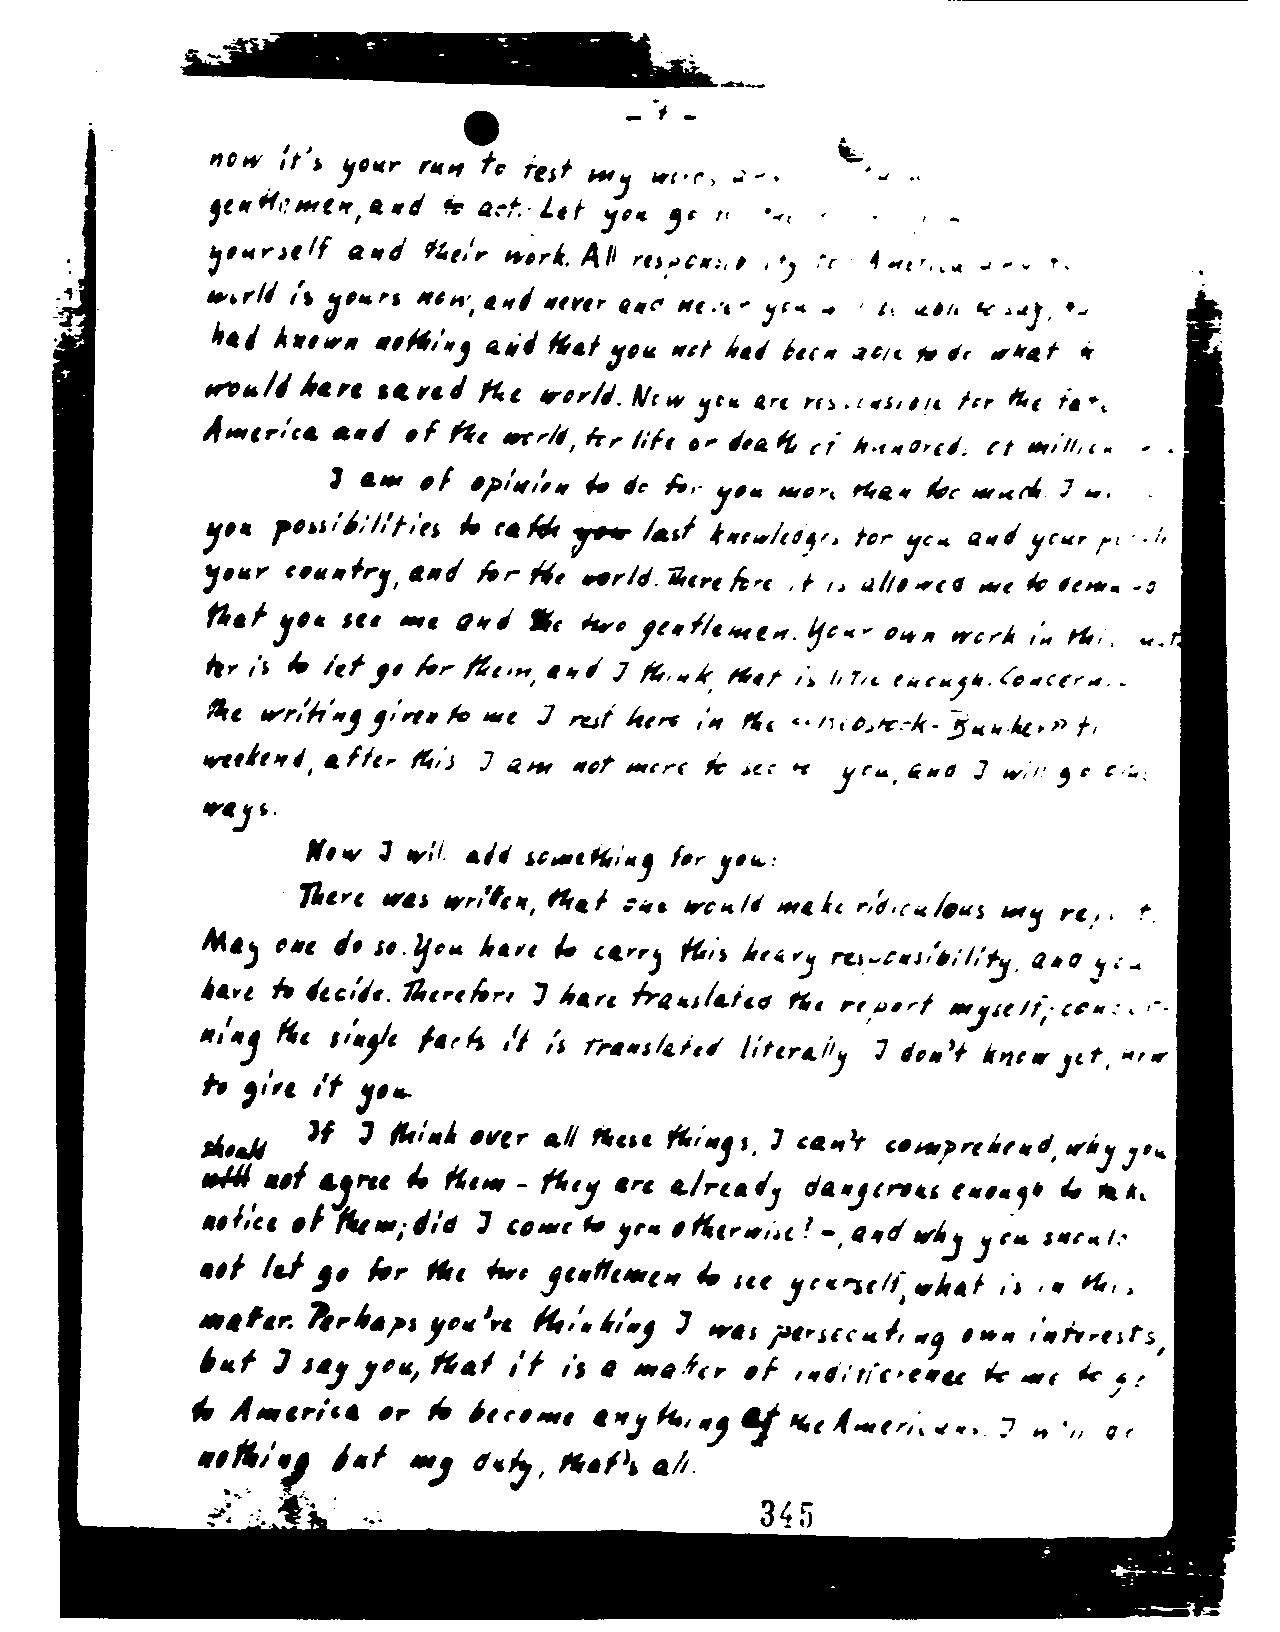 now it's your run to test my
gentlemen, and to act. Let you go
yourself and their work. All
world is yours now, and never and never you
had known nothing and that you not had been able to do what
would have saved the world. Now you are responsible for the
America and of the world, for life or death of hundred. of
I am of opinion to do for you more than too much. I
you possibilities to catch you last knowledges for you and your
your country, and for the world. Therefore it is allowed me to
that you see me and the two gentlemen. Your own work in
ter is to let go for them, and I think, that is little enough.
The writing given to me I rest here in the
weekend, after this I am not more to see you, and I will go
ways.
Now I will add something for you:
There was written, that one would make ridiculous my
May one do so. You have to carry this heavy responsibility, and you
have to decide. Therefore I have translated the report myself;
ning the single facts it is translated literally I don't know yet, how
to give it you
If I think over all these things, I can't comprehend, why you
should
will not agree to them - they are already dangerous enough to take
notice of them; did I come to you otherwise? -, and why you should
not let go for the two gentlemen to see yourself, what is in this
matter. Perhaps you've thinking I was persecuting own interests,
but I say you, that it is a matter of indifference to me to go
to America or to become anything of the Americans. I
nothing but my duty, that's all.
345